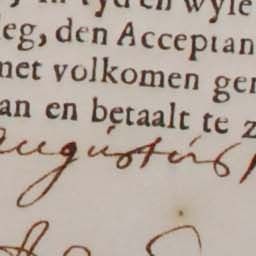 in tyd en wyle
leg, den Acceptan
met volkomen ger
an en betaalt te z
augustus